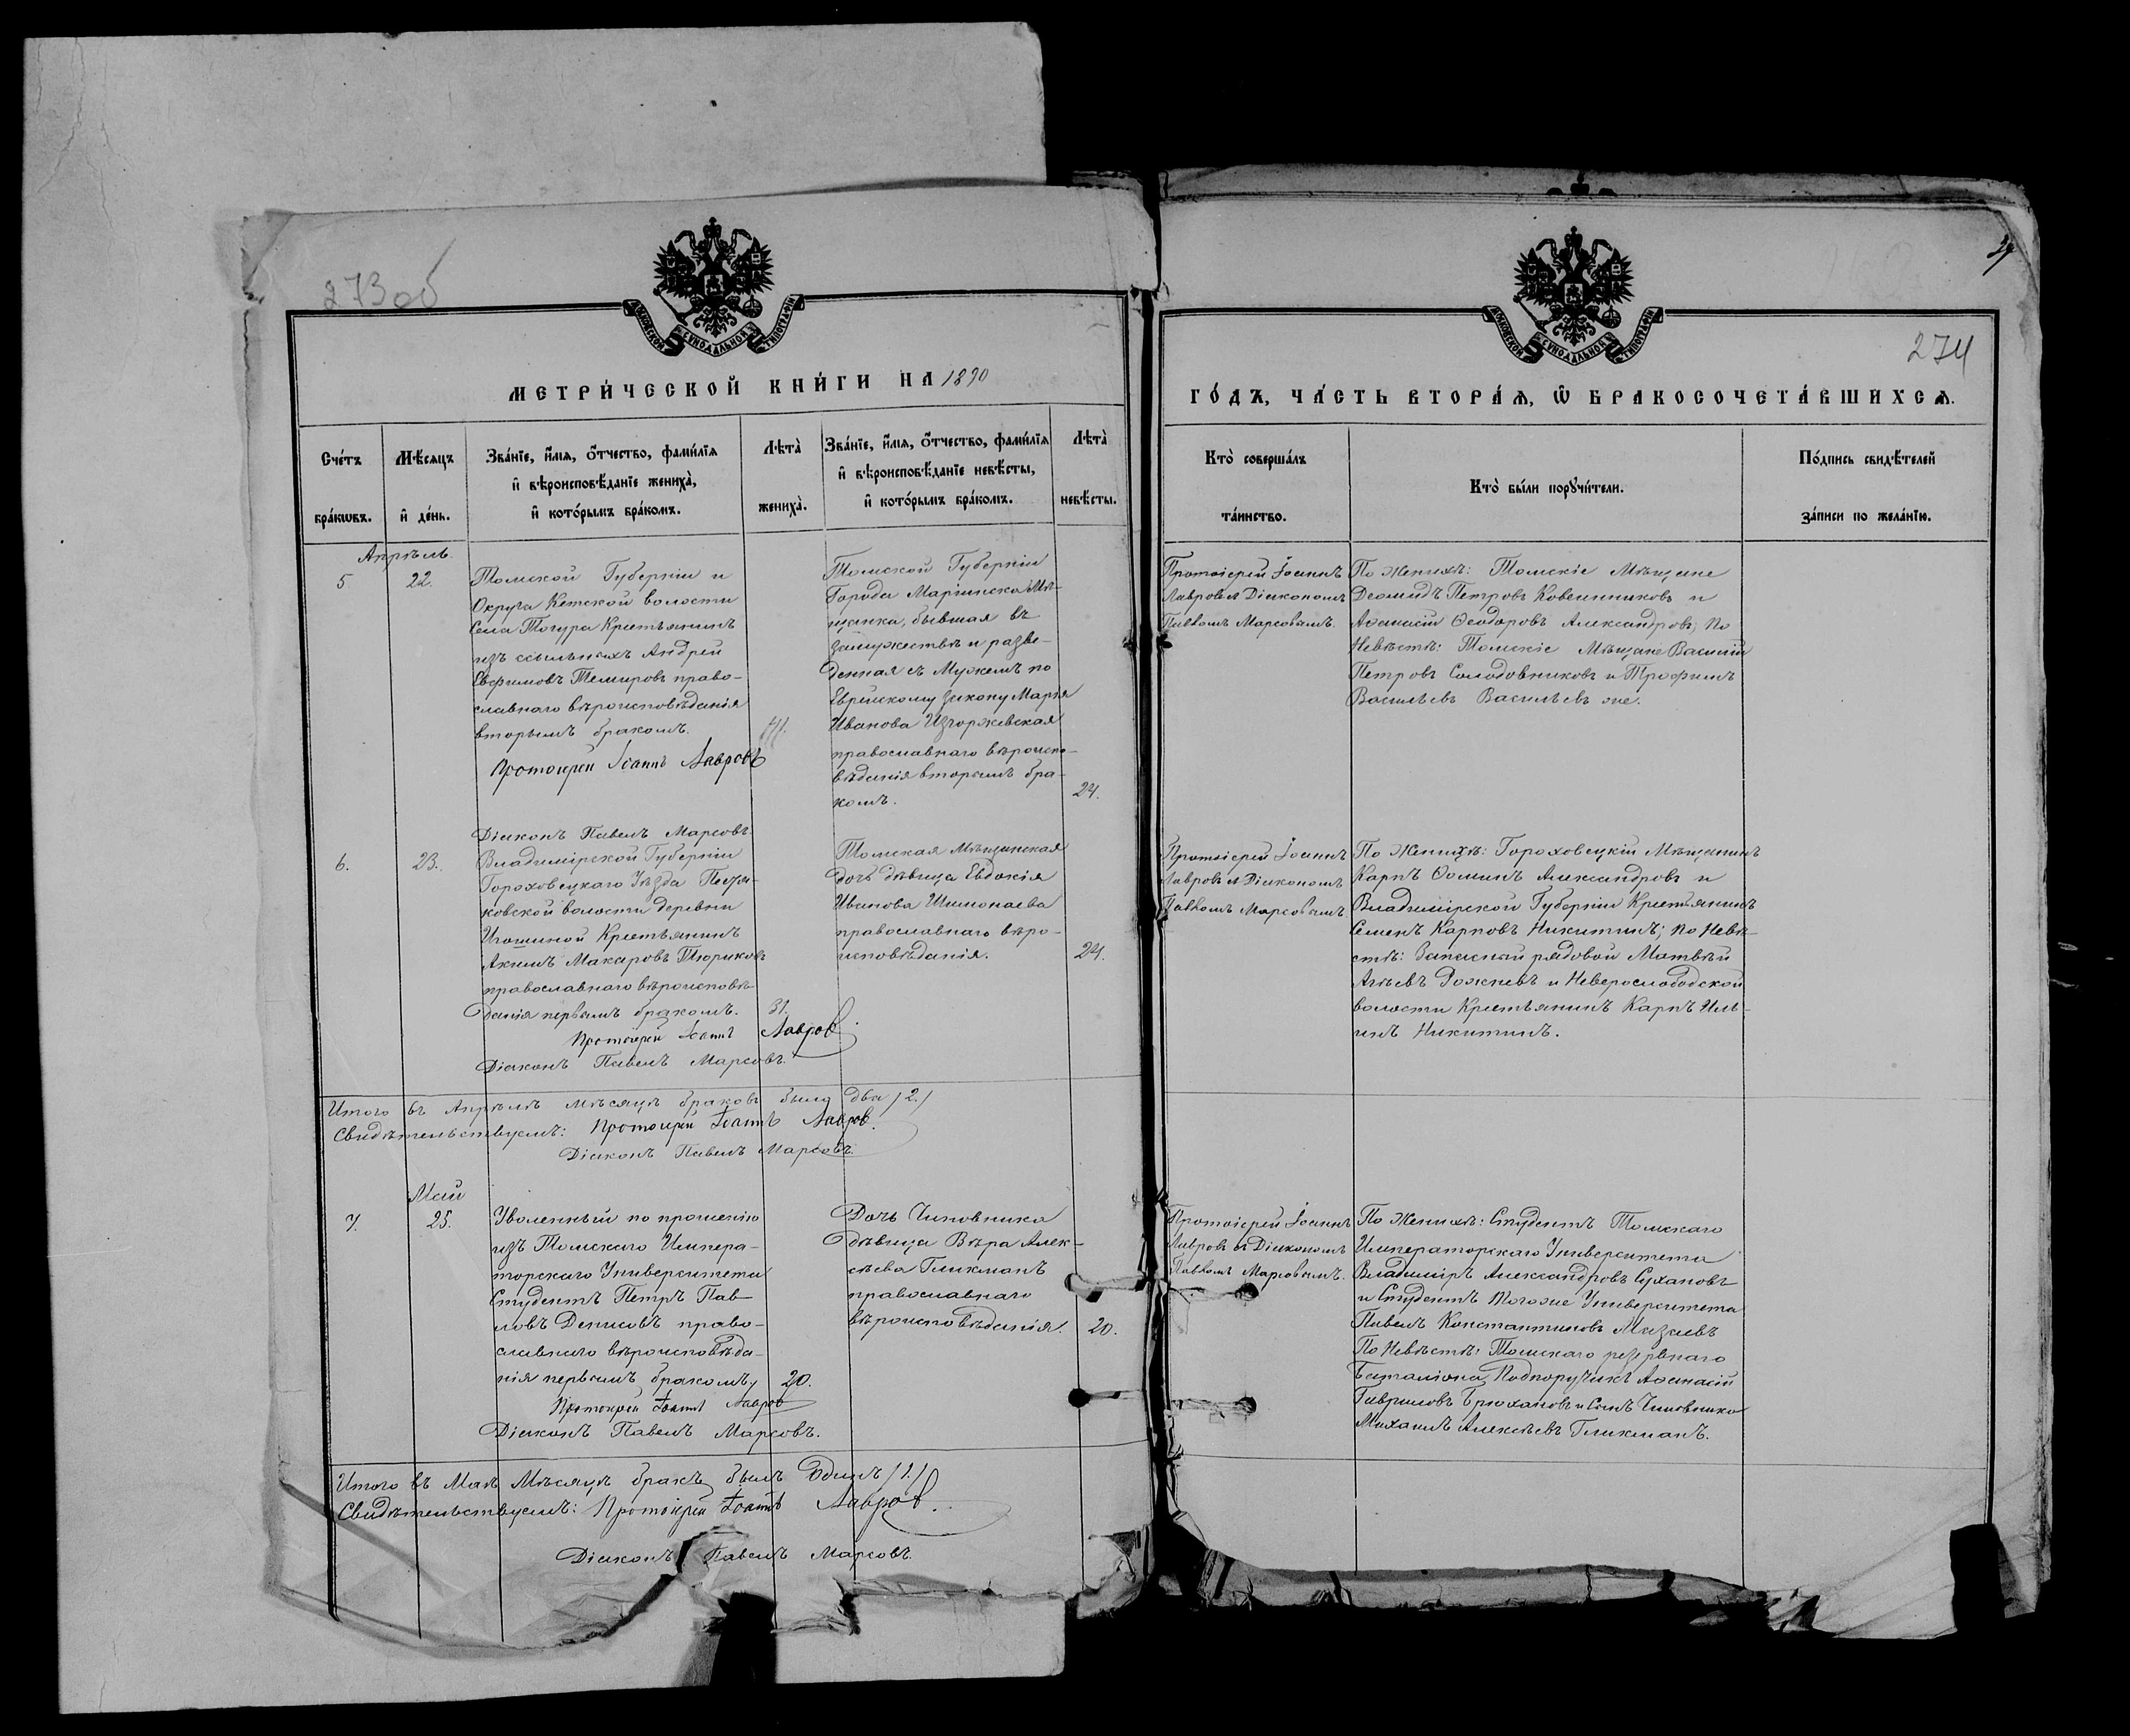 273 об
МОСКОВСКОЙ СѴНОДАЛЬНОЙ ТИПОГРАФІИ
МЕТРИ́ЧЕСКОЙ КНИ́ГИ НА 1890
Сче́тъ бра́кѡвъ.
Мѣ́сяцъ и҆ де́нь.
Зва́нїе, и҆́мя, ѻ҆́тчество, фами́лїя
и҆ вѣроисповѣ́данїе жениха̀,
и҆ кото́рымъ бра́комъ.
Лѣта̀ жениха̀.
Зва́нїе, и҆́мя, ѻ҆́тчество, фами́лїя
и҆ вѣроисповѣ́данїе невѣ́сты,
и҆ кото́рымъ бра́комъ.
Лѣта̀ невѣ́сты.
Апрѣль
5
22.
Томской Губерніи и
Округа Кетской волости
Села Тогура Крестьянинъ
изъ ссыльныхъ Андрей
Евфимовъ Темировъ право-
славнаго вѣроисповѣданія
вторымъ бракомъ.
Протоіерей Іоаннъ Лавровъ
Діаконъ Павелъ Марсовъ
Томской Губерніи
Города Маріинска Мѣ-
щанка, бывшая въ
замужествѣ и разве-
денная съ Мужемъ по
Еврейскому закону Марія
Иванова Изгоржевская
православнаго вѣроиспо-
вѣданія вторымъ бра-
комъ.
24.
6.
23.
Владимірской Губерніи
Гороховецкаго Уѣзда
ковской волости деревни
Крестьянинъ
Акимъ Макаровъ Тюриковъ
православнаго вѣроисповѣ-
данія первымъ бракомъ.
31.
Протоіерей Іоаннъ Лавровъ
Діаконъ Павелъ Марсовъ.
Томская Мѣщанская
дочь дѣвица Евдокія
Иванова Шимонаева
православнаго вѣро-
исповѣданія.
24.
Итого въ Апрѣлѣ мѣсяцѣ браковъ было два /2./
Свидѣтельствуемъ: Протоіерей Іоаннъ Лавровъ.
Діаконъ Павелъ Марсовъ.
Май
7.
25.
Уволенный по прошенію
изъ Томскаго Импера-
торскаго Университета
Студентъ Петръ Пав-
ловъ Денисовъ право-
славнаго вѣроисповѣда-
нія первымъ бракомъ,
20.
Протоіерей Іоаннъ Лавровъ
Діаконъ Павелъ Марсовъ.
Дочь Чиновника
дѣвица Вѣра Алек-
сѣева Гликманъ
православнаго
вѣроисповѣданія.
20.
Итого въ Маѣ Мѣсяцѣ бракъ былъ Одинъ /1./
Свидѣтельствуемъ: Протоіерей Іоаннъ Лавровъ.
Діаконъ Павелъ Марсовъ.
274
МОСКОВСКОЙ СѴНОДАЛЬНОЙ ТИПОГРАФІИ
ГО́ДЪ, ЧА́СТЬ ВТОРА́Я, Ѽ БРАКОСОЧЕТА́ВШИХСЯ.
Кто̀ соверша́лъ та́инство.
Кто̀ бы́ли порꙋчи́тели.
По́дпись свидѣ́телей
за́писи по жела́нїю.
Протоіерей Іоаннъ
Лавровъ съ Діакономъ
Павломъ Марсовымъ.
По Женихѣ: Томскіе Мѣщане
Діомидъ Петровъ Ковешниковъ и
Аѳанасій Ѳеодоровъ Александровъ; По
Невѣстѣ: Томскіе Мѣщане Василій
Петровъ Солодовниковъ и Трофимъ
Васильевъ Васильевъ же.
Протоіерей Іоаннъ
Лавровъ съ Діакономъ
Павломъ Марсовымъ
По Женихѣ: Гороховецкій Мѣщанинъ
Карпъ Ѳоминъ Александровъ и
Владимірской Губерніи Крестьянинъ
Семенъ Карповъ Никитинъ; по Невѣ-
стѣ: Запасный рядовой Матвѣй
и
волости Крестьянинъ Карпъ Иль-
инъ Никитинъ.
Протоіерей Іоаннъ
Лавровъ съ Діакономъ
Павломъ Марсовымъ.
По Женихѣ: Студентъ Томскаго
Императорскаго Университета
Владиміръ Александровъ Сухановъ
и Студентъ Тогоже Университета
Павелъ Константиновъ Мазаевъ
По Невѣстѣ: Томскаго резервнаго
Баталіона Подпоручикъ Аѳанасій
Гавриловъ Брюхановъ и Сынъ Чиновника
Михаилъ Алексѣевъ Гликманъ.